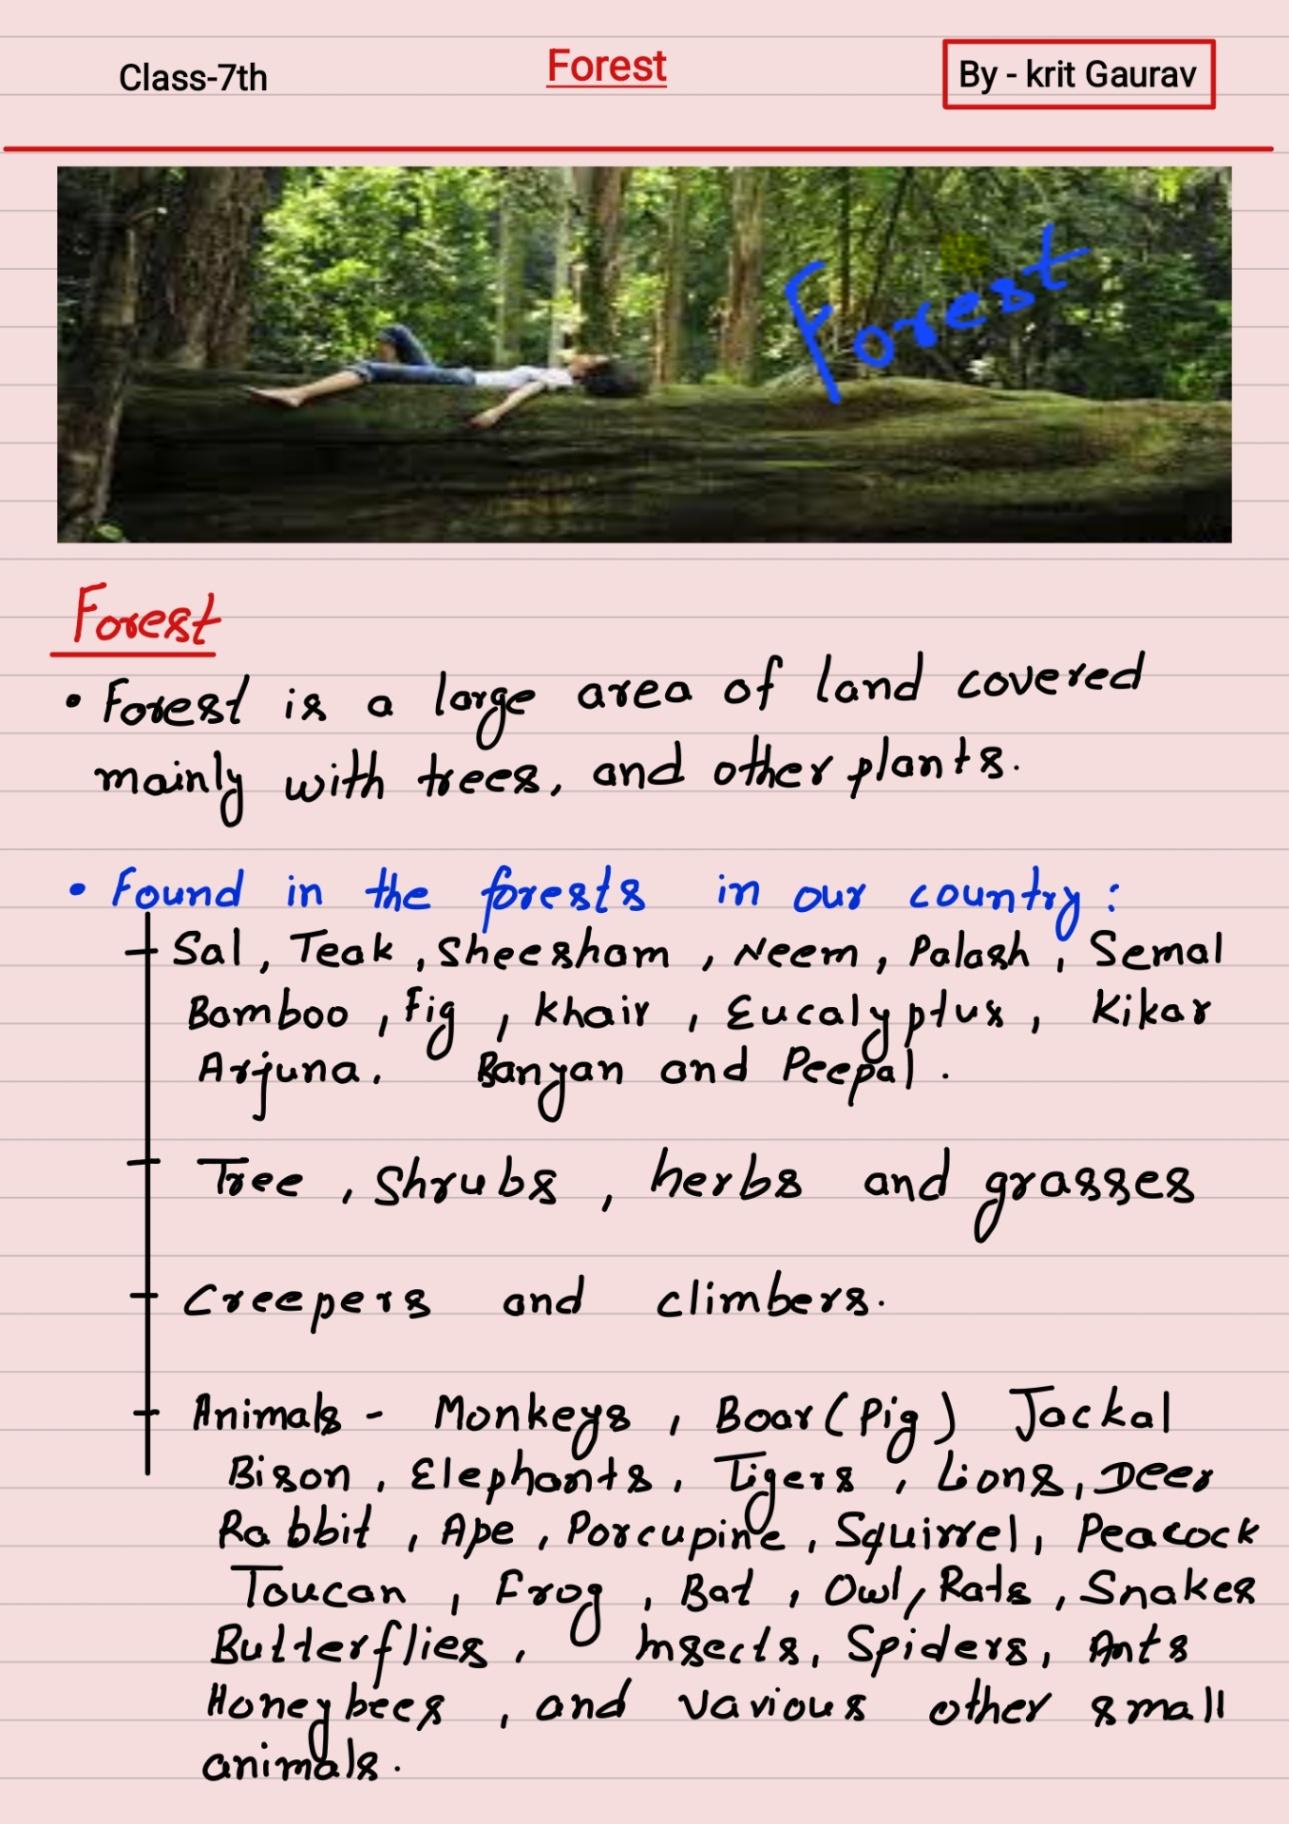 Class-7th
Forest
By - krit Gaurav
Forest
Forest
• Forest is a large area of land covered
mainly with trees, and other plants.
• Found in the forests in our country :
Sal, Teak, Sheesham, Neem, Palash, Semal
Bamboo, Fig, Khair, Eucalyptus, Kikar
Arjuna. Banyan and Peepal.
Tree, Shrubs, herbs and grasses
Creepers and climbers.
Animals - Monkeys, Boar (Pig) Jackal
Bison, Elephants, Tigers, Lions, Deer
Rabbit, Ape, Porcupine, Squirrel, Peacock
Toucan, Frog, Bat, Owl, Rats, Snakes
Butterflies, Insects, Spiders, Ants
Honeybees, and various other small
animals.